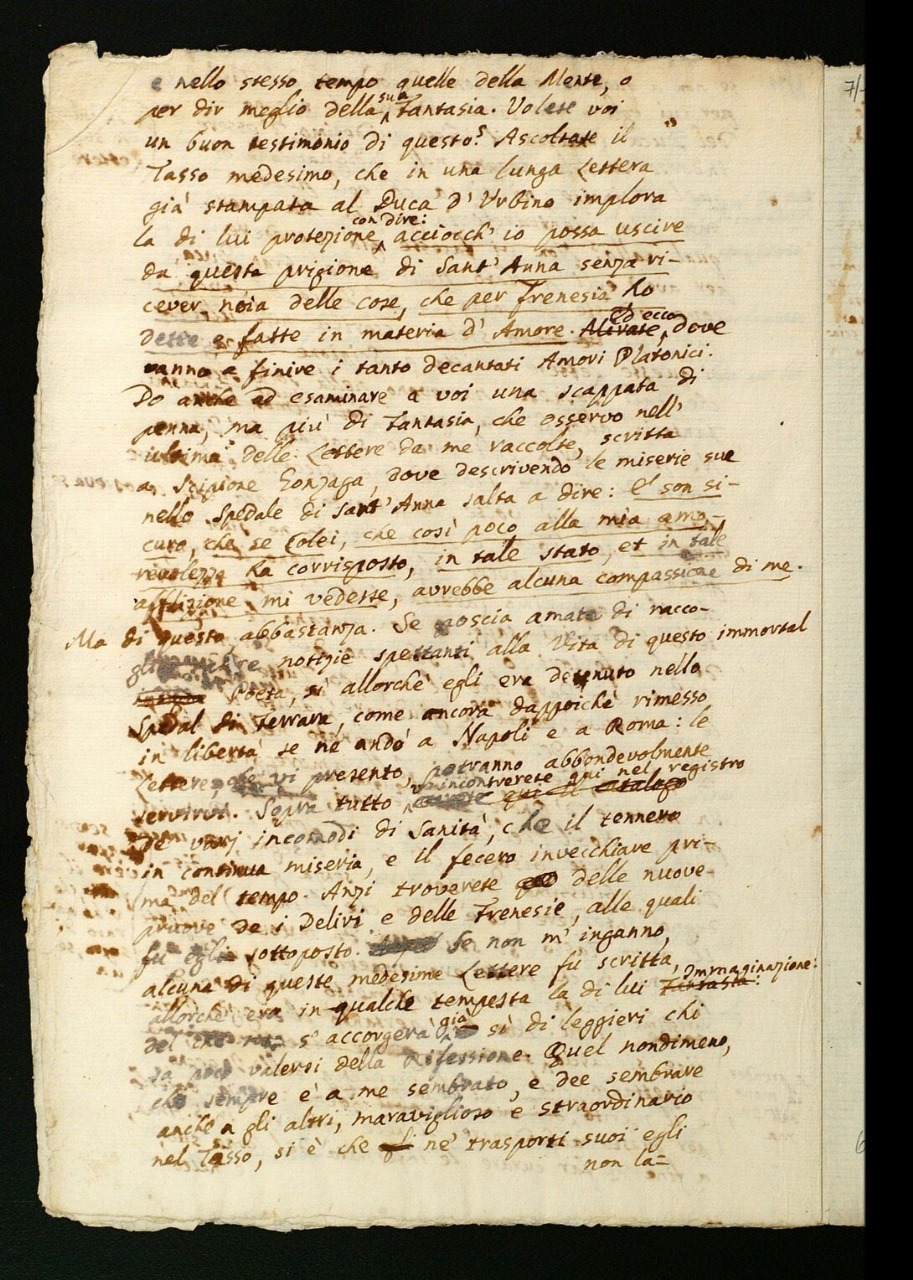 e nello stesso tempo quelle della Mente, o
per dir meglio della sua Fantasia. Volete voi
un buon testimonio di questo? Ascoltate il
Tasso medesimo, che in una lunga Lettera
già stampata al Duca d' Urbino implora
la di lui protezione, con dire: acciocch' io possa uscire
da questa prigione di Sant' Anna senza ri-
cever noia delle cose, che per frenesia ho
dette e fatte in materia d' Amore. Ed ecco, dove
vanno a finire i tanto decantati Amori Platonici.
Do anche ad esaminare a voi una scappata di
penna, ma più di Fantasia, che osservo nell'
ultima delle Lettere da me raccolte, scritta
a Scipione Gonzaga, dove descrivendo le miserie sue
nello Spedale di Sant' Anna salta a dire: E son si-
curo, che se Colei, che così poco alla mia amo-
revolezza ha corrisposto, in tale stato, et in tale
afflizione mi vedesse, avrebbe alcuna compassione di me.
Ma di questo abbastanza. Se poscia amate di racco-
gliere notizie spettanti alla Vita di questo immortal
Poeta, sì allorchè egli era detenuto nello
Spedal di Ferrara, come ancora dappoichè rimesso
in libertà se ne andò a Napoli e a Roma: le
Lettere, che vi presento, potranno abbondevolmente
servirvi. Sopra tutto v'incontrerete qui nel registro
de' varj incomodi di Sanità, che il tennero
in continua miseria, e il fecero invecchiare pri-
ma del tempo. Anzi troverete delle nuove
pruove de i Delirj e delle Frenesie, alle quali
fu egli sottoposto. Se non m' inganno,
alcuna di queste medesime Lettere fu scritta,
allorchè era in qualche tempesta la di lui Immaginazione:
del che s' accorgerà già sì di leggieri chi
sa poco valersi della Riflessione. Quel nondimeno,
che sempre è a me sembrato, e dee sembrare
anche a gli altri, maraviglioso e straordinario
nel Tasso, si è che ne' trasporti suoi egli
non la-